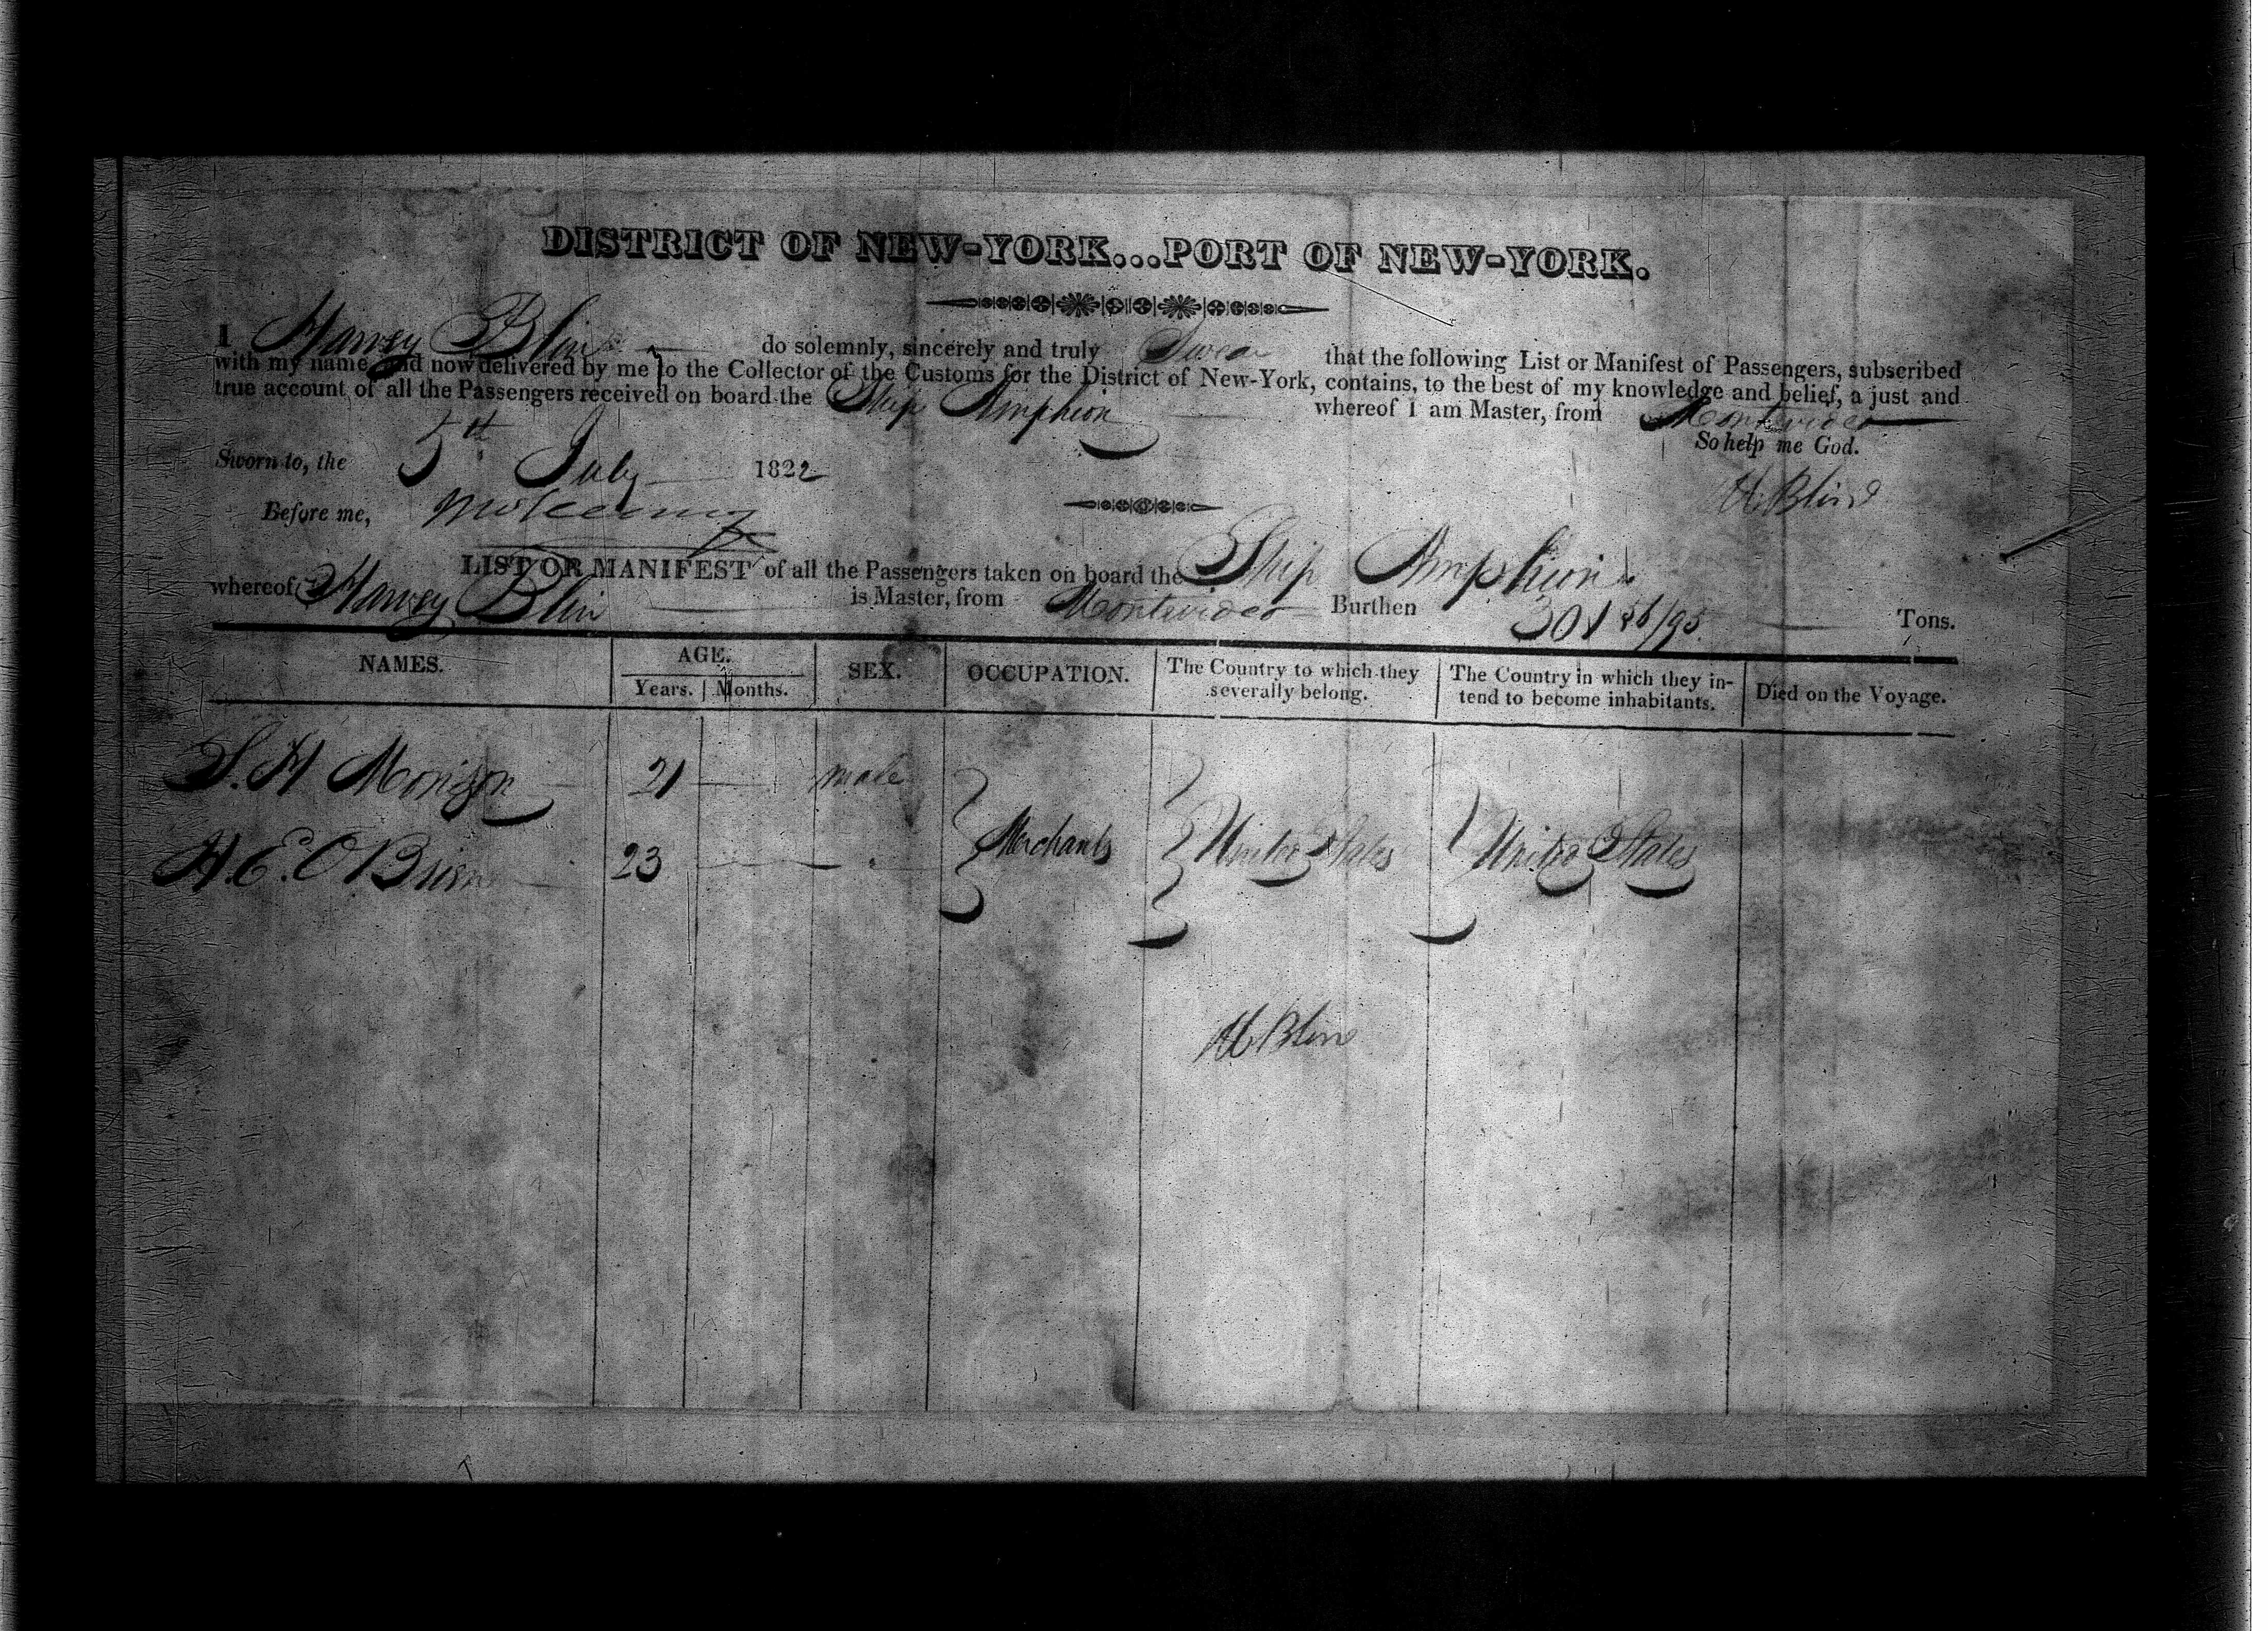 DISTRICT OF NEW-YORK...PORT OF NEW-YORK.
I Harvey Blin do solemnly, sincerely and truly Swear that the following List or Manifest of Passengers, subscribed
with my name, and now delivered by me to the Collector of the Customs for the District of New-York, contains, to the best of my knowledge and belief, a just and
true account of all the Passengers received on board the Ship Amphion whereof I am Master, from Montevideo
So help me God.
Sworn to, the 5th July 1822
H Blin
Before me,
LIST OR MANIFEST of all the Passengers taken on board the Ship Amphion
whereof Harvey Blin is Master, from Montevideo Burthen 301 86/95 Tons.
NAMES. AGE. SEX. OCCUPATION. The Country to which they severally belong. The Country in which they in-tend to become inhabitants. Died on the Voyage.
Years. Months.
S. H Morison 21 male
H. E. O Brien 23 Merchants United States United States
H Blin